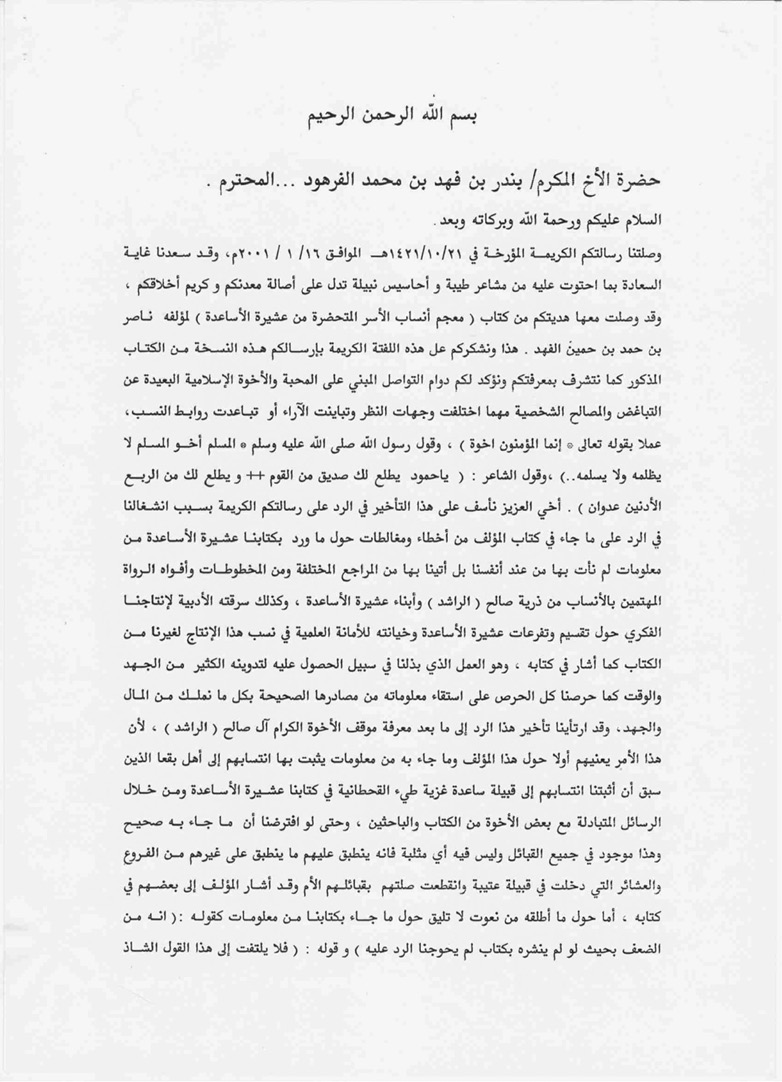 بسم الله الرحمن الرحيم
حضرة الأخ المكرم/ بندر بن فهد بن محمد الفرهود ...المحترم .
السلام عليكم ورحمة الله وبركاته وبعد.
وصلتنا رسالتكم الكريمة المؤرخة في ١٤٢١/١٠/٢١هـ الموافق ١٦/ ١ / ٢٠٠١م، وقد سعدنا غاية
السعادة بما احتوت عليه من مشاعر طيبة و أحاسيس نبيلة تدل على أصالة معدنكم و كريم أخلاقكم ،
وقد وصلت معها هديتكم من كتاب ( معجم أنساب الأسر المتحضرة من عشيرة الأساعدة ) لمؤلفه ناصر
بن حمد بن حمين الفهد . هذا ونشكركم عل هذه اللفتة الكريمة بإرسالكم هذه النسخة من الكتاب
المذكور كما نتشرف بمعرفتكم ونؤكد لكم دوام التواصل المبني على المحبة والأخوة الإسلامية البعيدة عن
التباغض والمصالح الشخصية مهما اختلفت وجهات النظر وتباينت الآراء أو تباعدت روابط النسب،
عملا بقوله تعالى * إنما المؤمنون اخوة ) ، وقول رسول الله صلى الله عليه وسلم * المسلم أخو المسلم لا
يظلمه ولا يسلمه..) ،وقول الشاعر : ( ياحمود يطلع لك صديق من القوم ++ و يطلع لك من الربع
الأدنين عدوان ) . أخي العزيز نأسف على هذا التأخير في الرد على رسالتكم الكريمة بسبب انشغالنا
في الرد على ما جاء في كتاب المؤلف من أخطاء ومغالطات حول ما ورد بكتابنا عشيرة الأساعدة من
معلومات لم نأت بها من عند أنفسنا بل أتينا بها من المراجع المختلفة ومن المخطوطات وأفواه الرواة
المهتمين بالأنساب من ذرية صالح ( الراشد ) وأبناء عشيرة الأساعدة ، وكذلك سرقته الأدبية لإنتاجنا
الفكري حول تقسيم وتفرعات عشيرة الأساعدة وخيانته للأمانة العلمية في نسب هذا الإنتاج لغيرنا من
الكتاب كما أشار في كتابه ، وهو العمل الذي بذلنا في سبيل الحصول عليه لتدوينه الكثير من الجهد
والوقت كما حرصنا كل الحرص على استقاء معلوماته من مصادرها الصحيحة بكل ما نملك من المال
والجهد، وقد ارتأينا تأخير هذا الرد إلى ما بعد معرفة موقف الأخوة الكرام آل صالح ( الراشد ) ، لأن
هذا الأمر يعنيهم أولا حول هذا المؤلف وما جاء به من معلومات يثبت بها انتسابهم إلى أهل بقعا الذين
سبق أن أثبتنا انتسابهم إلى قبيلة ساعدة غزية طيء القحطانية في كتابنا عشيرة الأساعدة ومن خلال
الرسائل المتبادلة مع بعض الأخوة من الكتاب والباحثين ، وحتى لو افترضنا أن ما جاء به صحيح
وهذا موجود في جميع القبائل وليس فيه أي مثلبة فانه ينطبق عليهم ما ينطبق على غيرهم من الفروع
والعشائر التي دخلت في قبيلة عتيبة وانقطعت صلتهم بقبائلهم الأم وقد أشار المؤلف إلى بعضهم في
كتابه ، أما حول ما أطلقه من نعوت لا تليق حول ما جاء بكتابنا من معلومات كقوله :( انه من
الضعف بحيث لو لم ينشره بكتاب لم يحوجنا الرد عليه ) و قوله : ( فلا يلتفت إلى هذا القول الشاذ